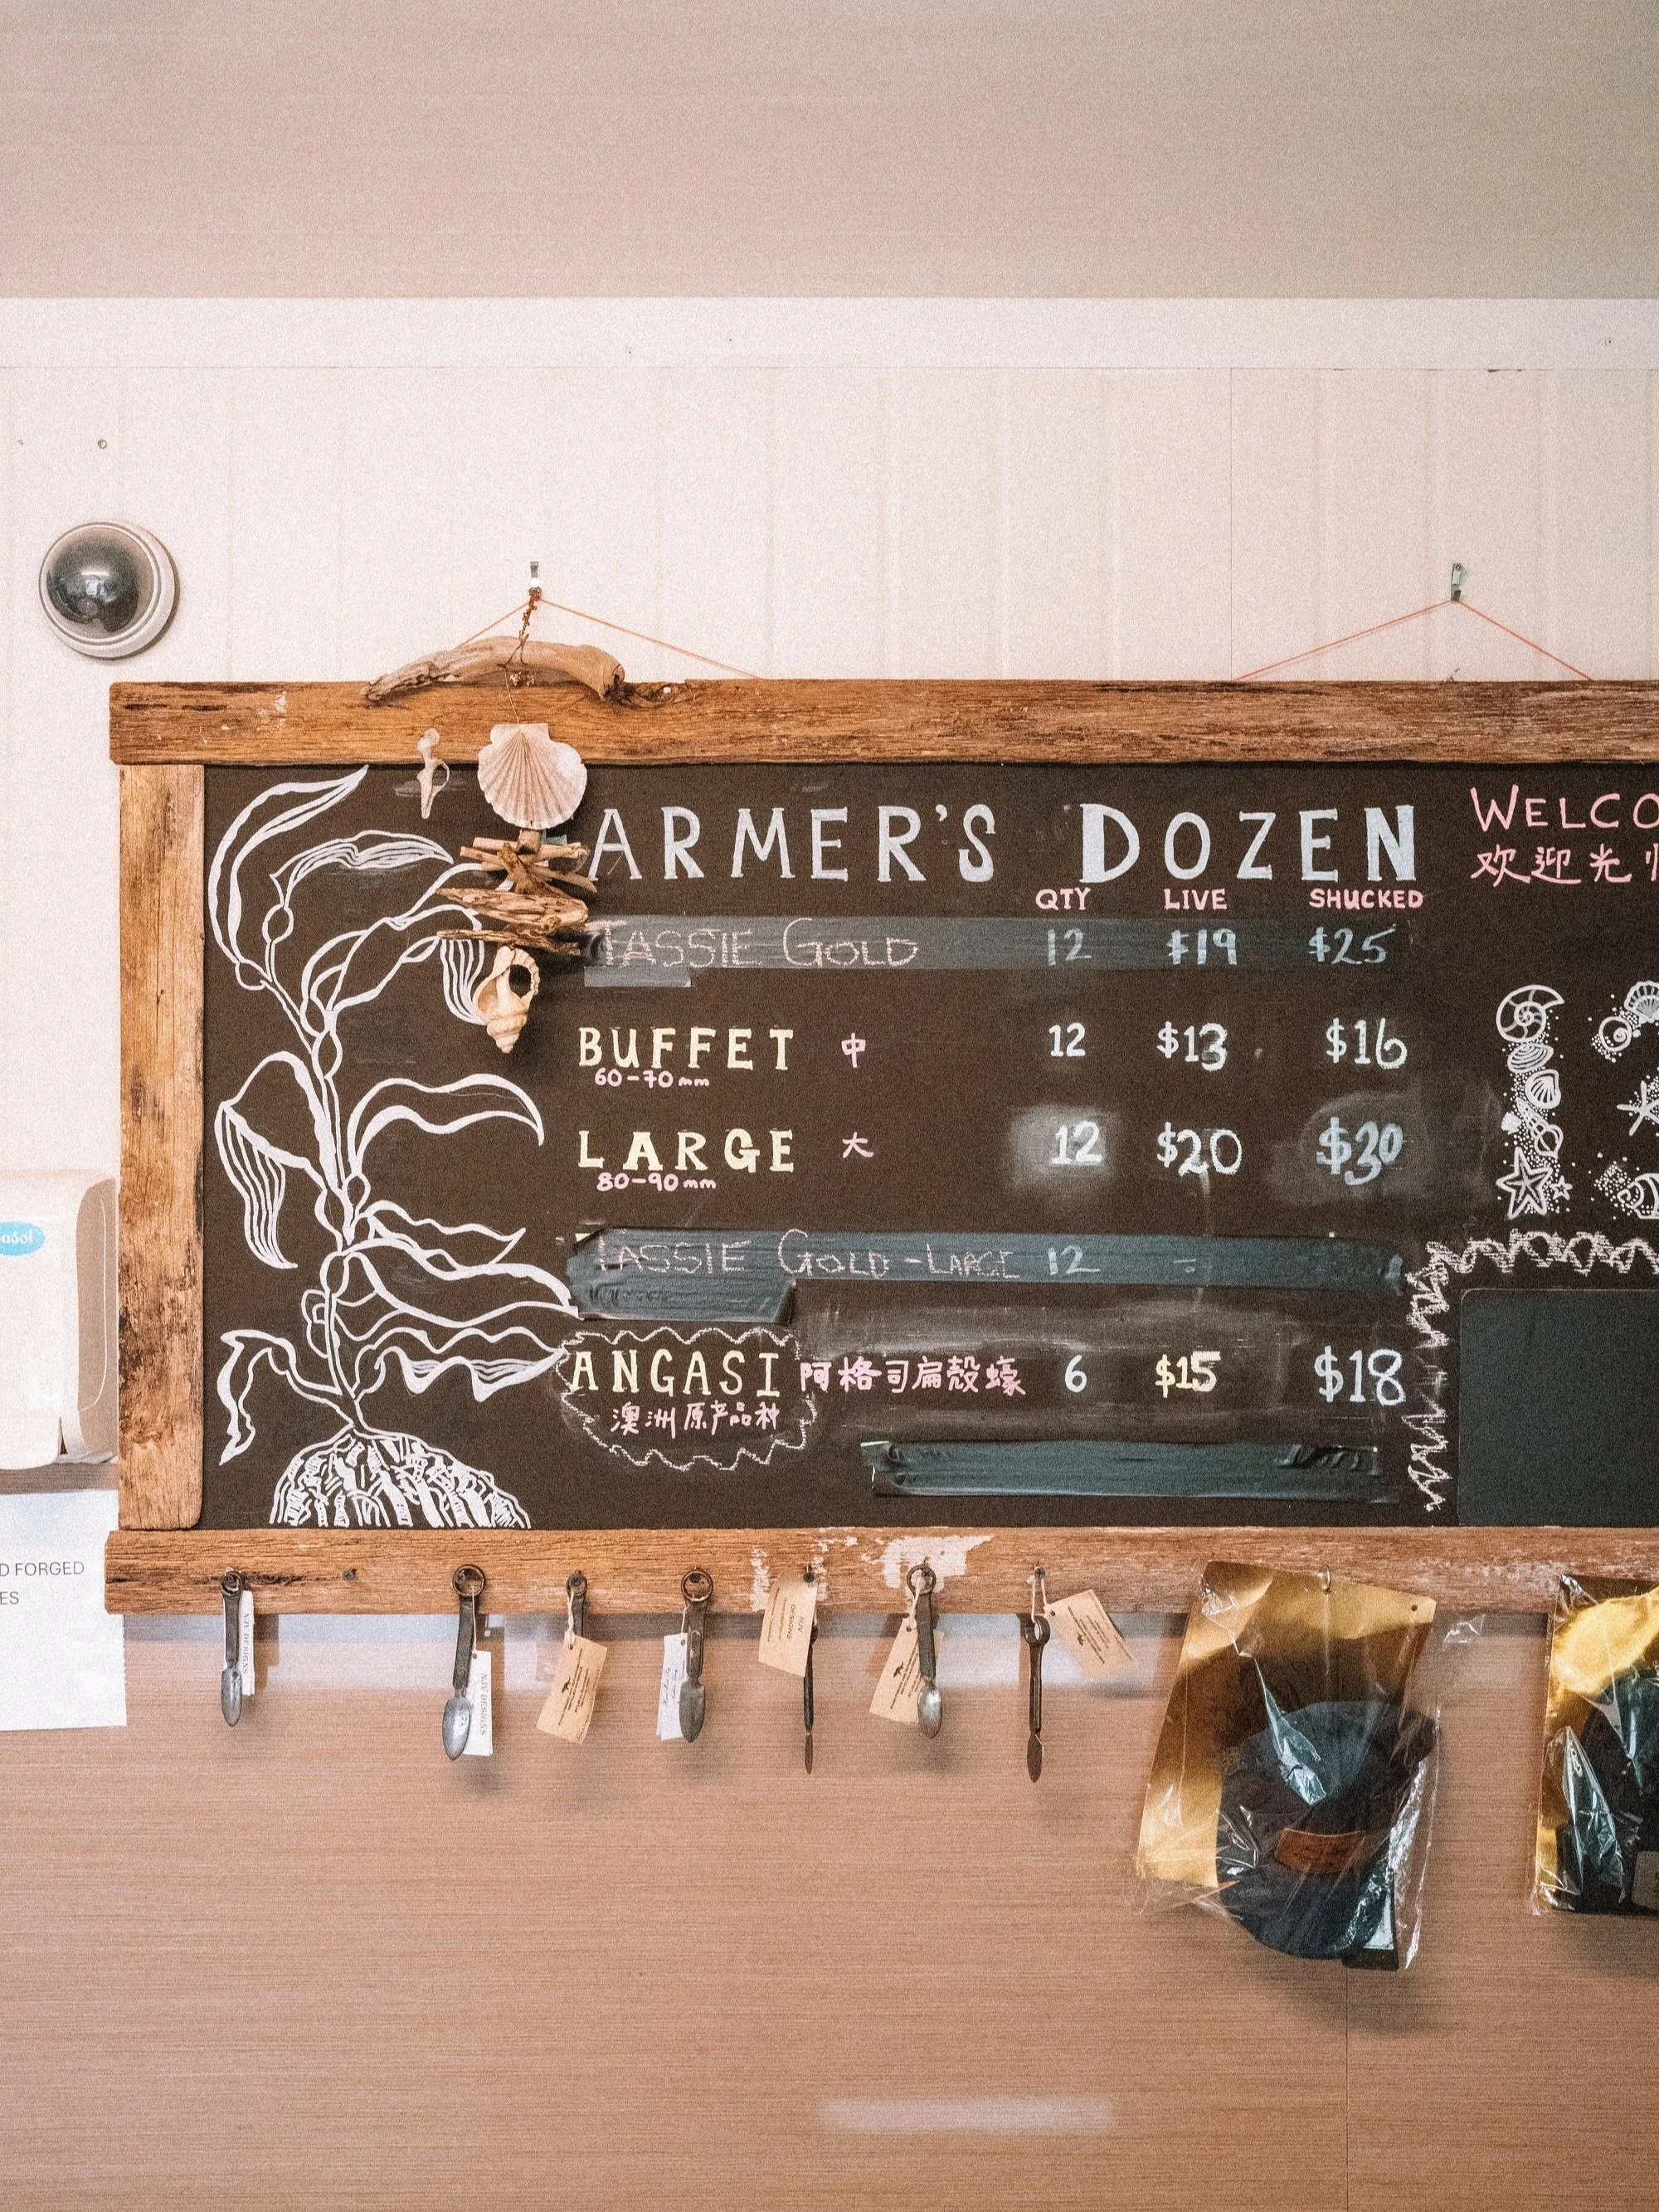 ARMER'S DOZEN
QTY LIVE SHUCKED
TASSIE GOLD 12 $19 $25
BUFFET 中 12 $13 $16
60-70mm
LARGE 大 12 $20 $30
80-90mm
TASSIE GOLD-LARGE 12 -
ANGASI 阿格司扁殻蠔 6 $15 $18
澳洲原产品种
WELCO
欢迎光
D FORGED
ES
NJV DESIGNS
NJV DESIGNS
NJV DESIGNS